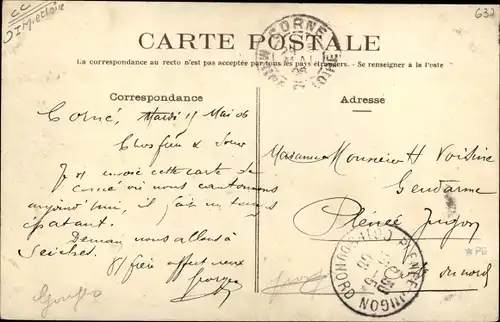 CC
D I M-et-Loire
632
CORNÉ
MAINE
LOIRE
CARTE POSTALE
La correspondance au recto n'est pas acceptée par tous les pays étrangers. - Se renseigner à la Poste
Correspondance
Corné, Mardi 15 Mai 06
Cher frère & Sœur
Je envoie cette carte de
Corné où nous cantonnons
aujourd'hui, il fait un temps
épatant.
Demain nous allons à
Seiches.
Georges
Adresse
Monsieur H Voisine
Gendarme
Plénée Jugon
Côte du nord
PLENEE-JUGON
COTES DU NORD
*PE
Georges